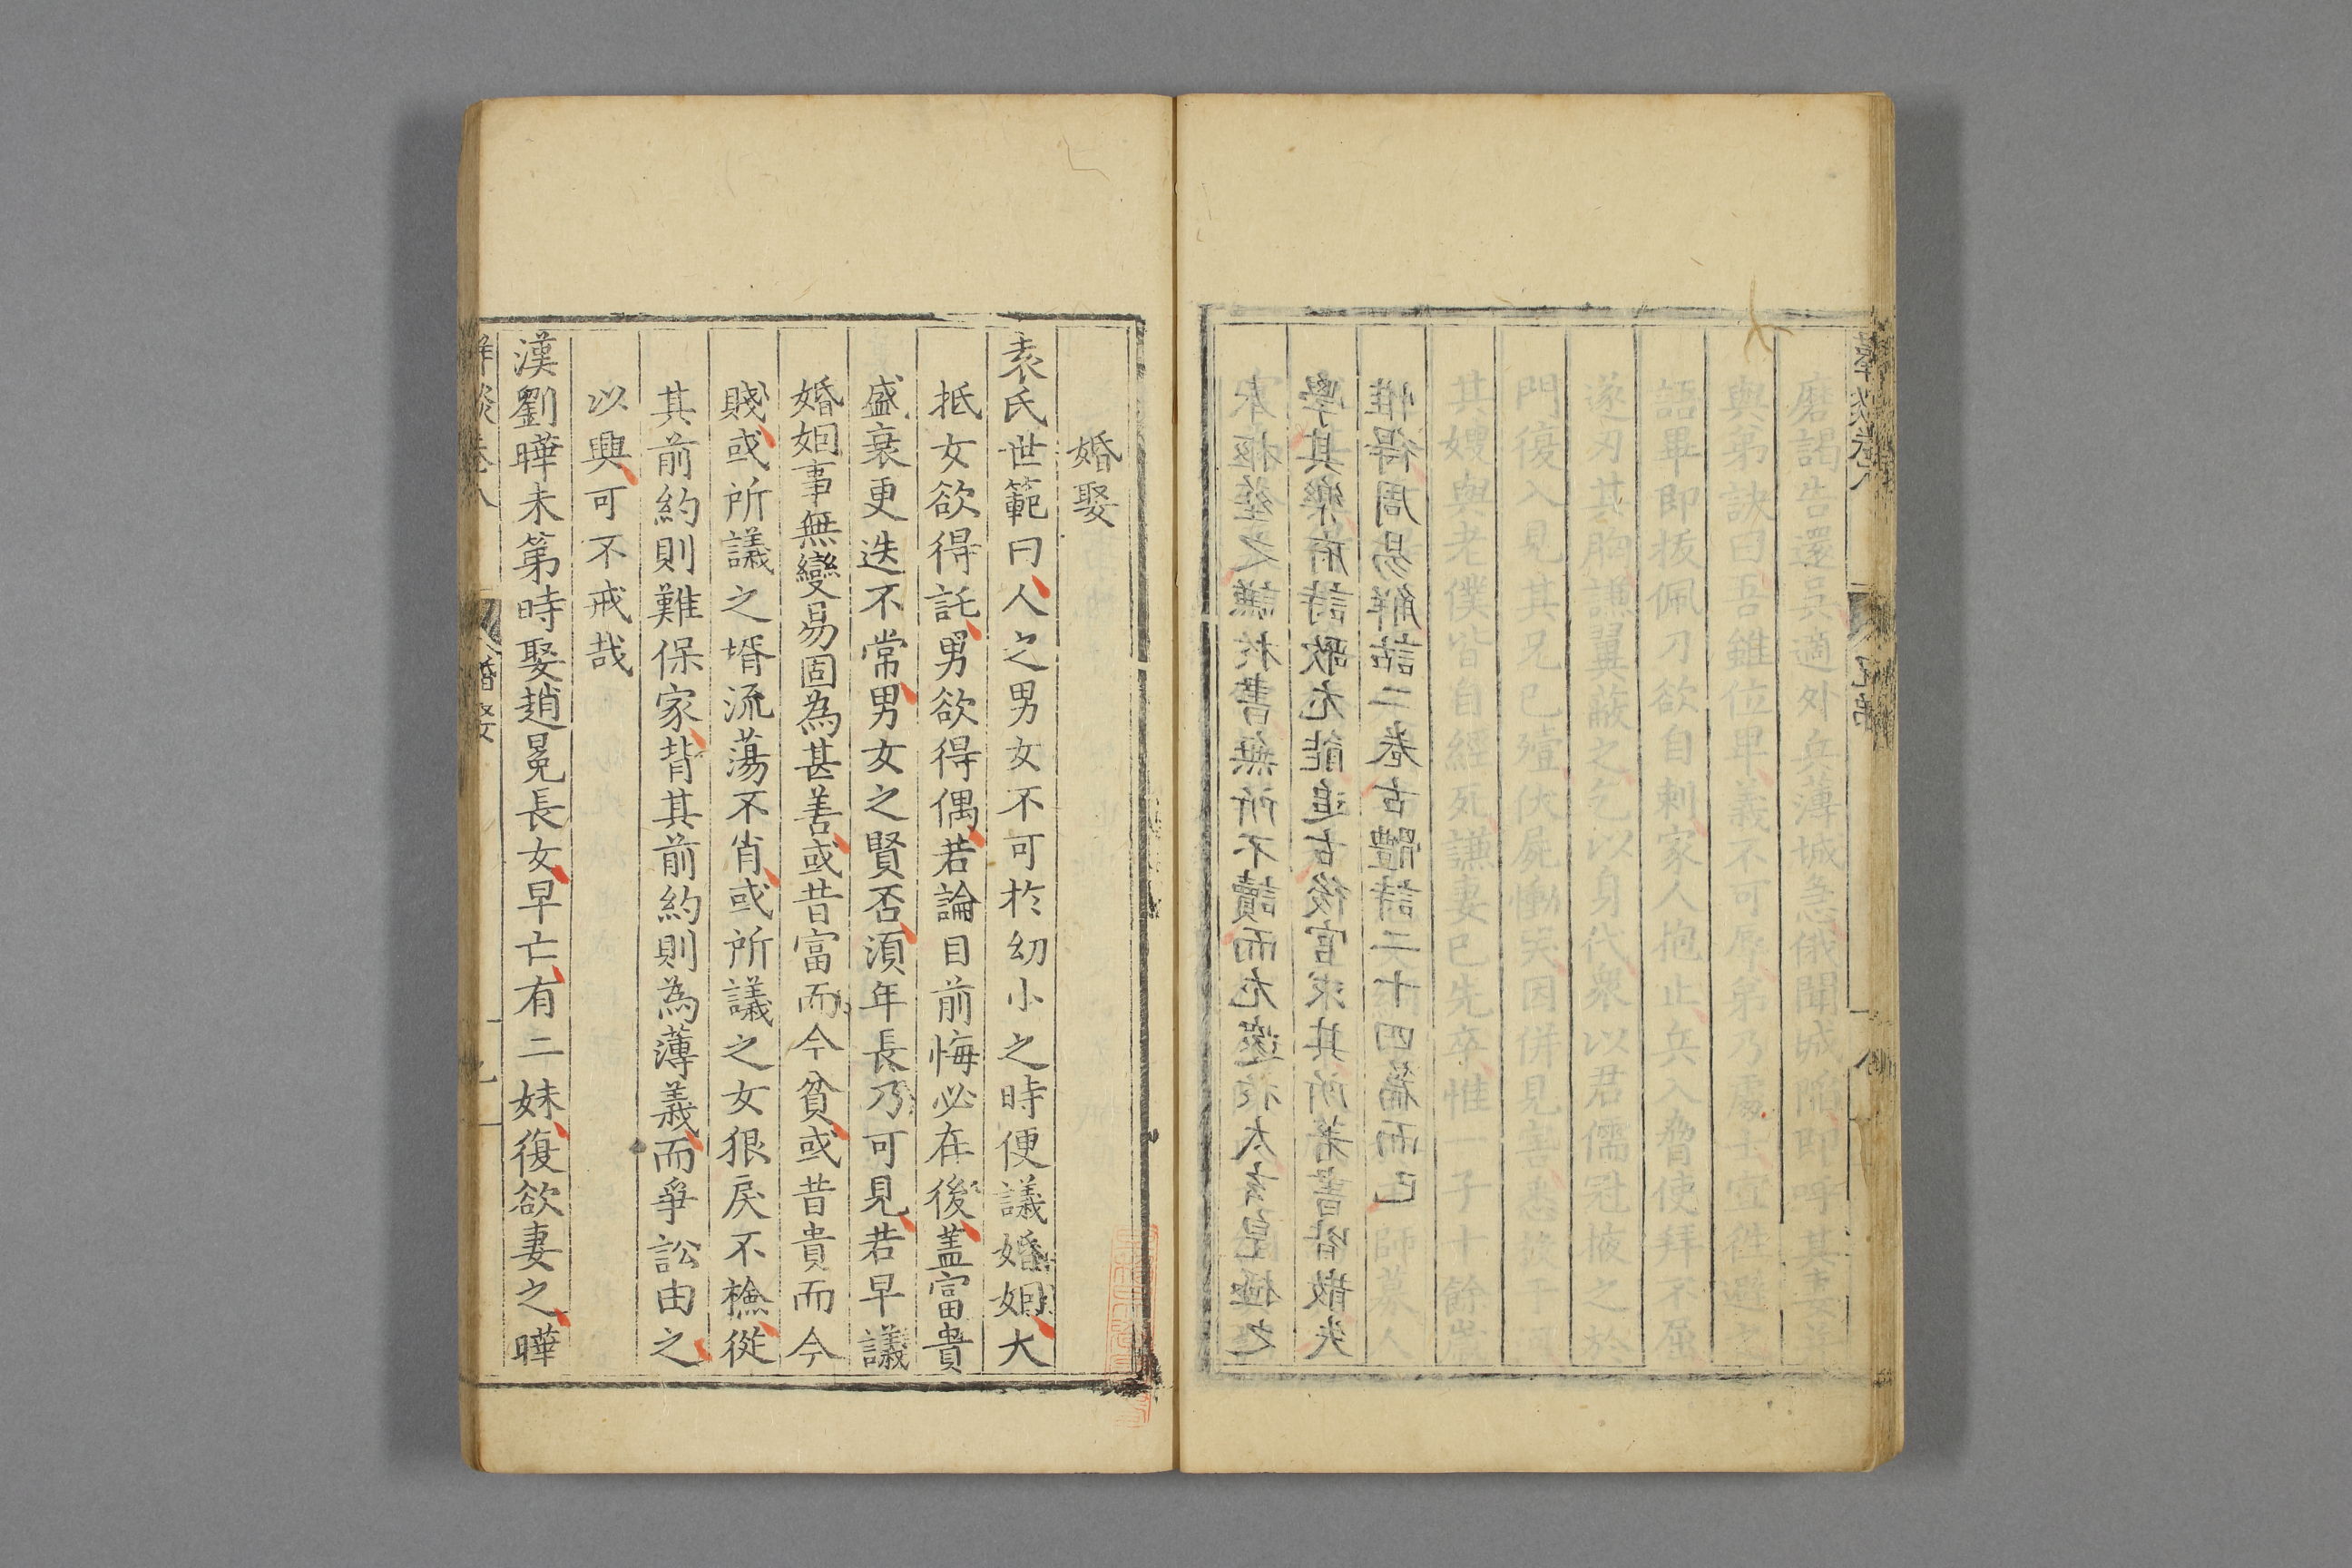 磨謁告還吳適外兵薄城急俄聞城陷即呼其妻
與弟訣曰吾雖位卑義不可辱弟乃處士宜徃避之
語畢即拔佩刀欲自刺家人抱止兵入脅使拜不屈
遂刃其胸謙翼蔽之乞以身代衆以君儒冠掖之於
門復入見其兄已殪伏屍慟哭因併見害悉投于河
其嫂與老僕皆自經死謙妻已先卒惟一子十餘歲
惟得周易解詁二卷古體詩二十四篇而已
學其樂府詩歌尤能追古後官求其所著書皆散失
之謙於書無所不讀而尤邃於太玄皇極之
婚娶
袁氏世範曰人之男女不可於幼小之時便議婚姻大
抵女欲得託男欲得偶若論目前悔必在後盖富貴
盛衰更迭不常男女之賢否湏年長乃可見若早議
婚姻事無變易固為甚善或昔富而今貧或昔貴而今
賤或所議之壻流蕩不肖或所議之女狠戾不檢從
其前約則難保家背其前約則為薄義而爭訟由之
以興可不戒哉
漢劉曄未第時娶趙冕長女早亡有二妹復欲妻之曄